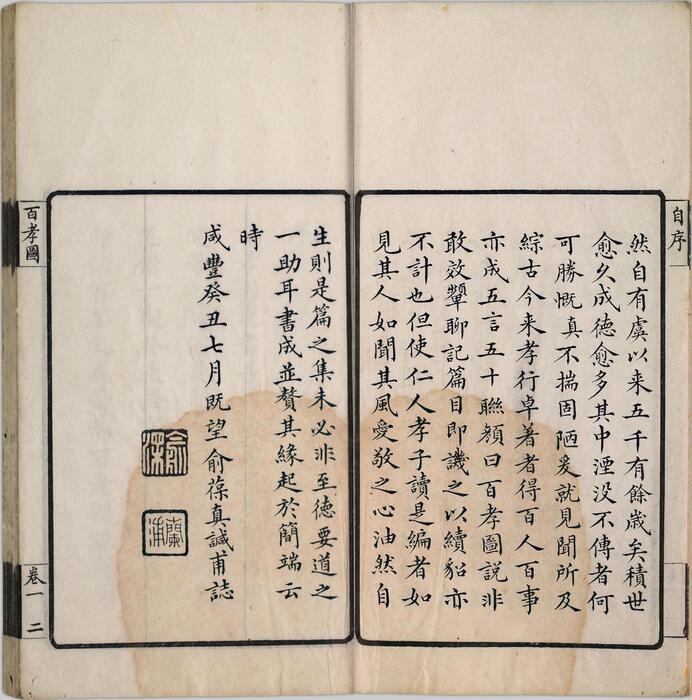 自序
然自有虞以来五千有餘歲矣積世
愈久成德愈多其中湮没不傳者何
可勝慨真不揣固陋爰就見聞所及
綜古今来孝行卓著者得百人百事
亦成五言五十聯顏曰百孝圖說非
敢效顰聊記篇目即譏之以續貂亦
不計也但使仁人孝子讀是編者如
見其人如聞其風愛敬之心油然自
生則是篇之集未必非至德要道之
一助耳書成並贅其緣起於簡端云
時
咸豐癸丑七月既望俞葆真誠甫誌
百孝圖
卷一
二
蘭浦